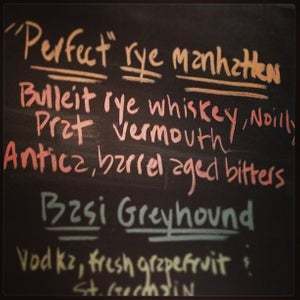 "Perfect" rye manhatten
Bulleit rye whiskey, Noilly
Prat vermouth
Antica, barrel aged bitters
Basi Greyhound
Vodka, fresh grapefruit &
St. Germain